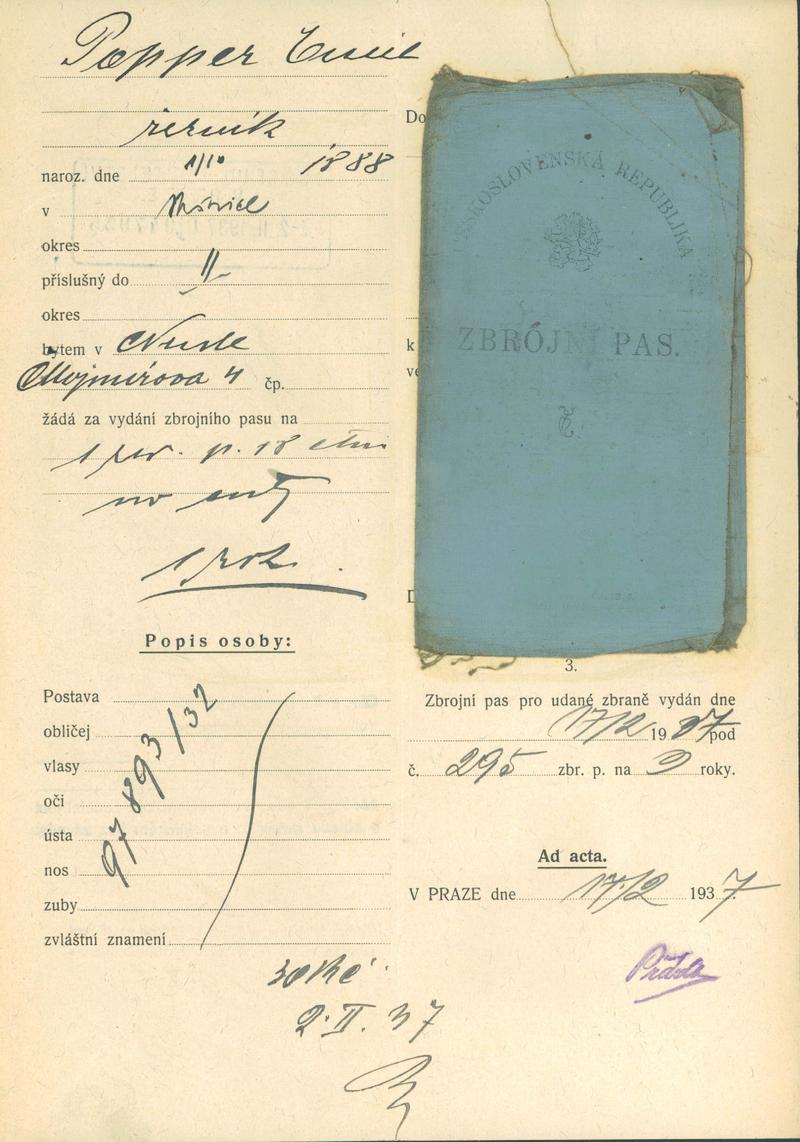 Popper Emil
řezník
naroz. dne 1/10 1888
v
okres
příslušný do
okres
bytem v Nusle
Mojmírova 4 čp.
žádá za vydání zbrojního pasu na
1 rev.
1 rok.
Popis osoby:
Postava
obličej
vlasy
oči
ústa
nos
zuby
zvláštní znamení
97893/32
30 Kč
2.II.37
Do
k
ve
D
ČESKOSLOVENSKÁ REPUBLIKA
ZBROJNÍ PAS.
3.
Zbrojní pas pro udané zbraně vydán dne
17/2 1937 pod
č. 295 zbr. p. na 3 roky.
Ad acta.
V PRAZE dne 17/2 1937.